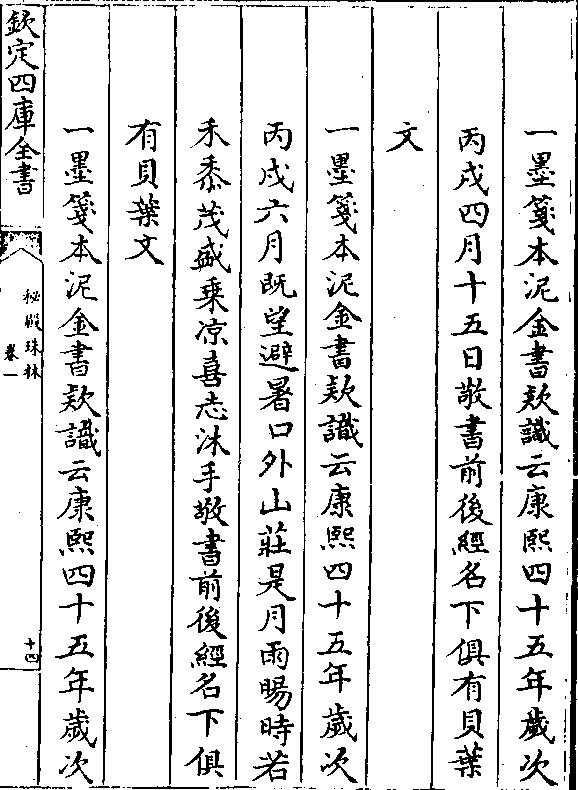 一墨箋本泥金書欵識云康熙四十五年歲次
丙戌四月十五日敬書前後經名下俱有貝葉
文
一墨箋本泥金書欵識云康熙四十五年歲次
丙戌六月既望避暑口外山莊是月雨暘時若
禾黍茂盛乗凉喜志沐手敬書前後經名下俱
有貝葉文
一墨箋本泥金書欵識云康熙四十五年歲次
欽定四庫全書
秘殿珠林
卷一
十四